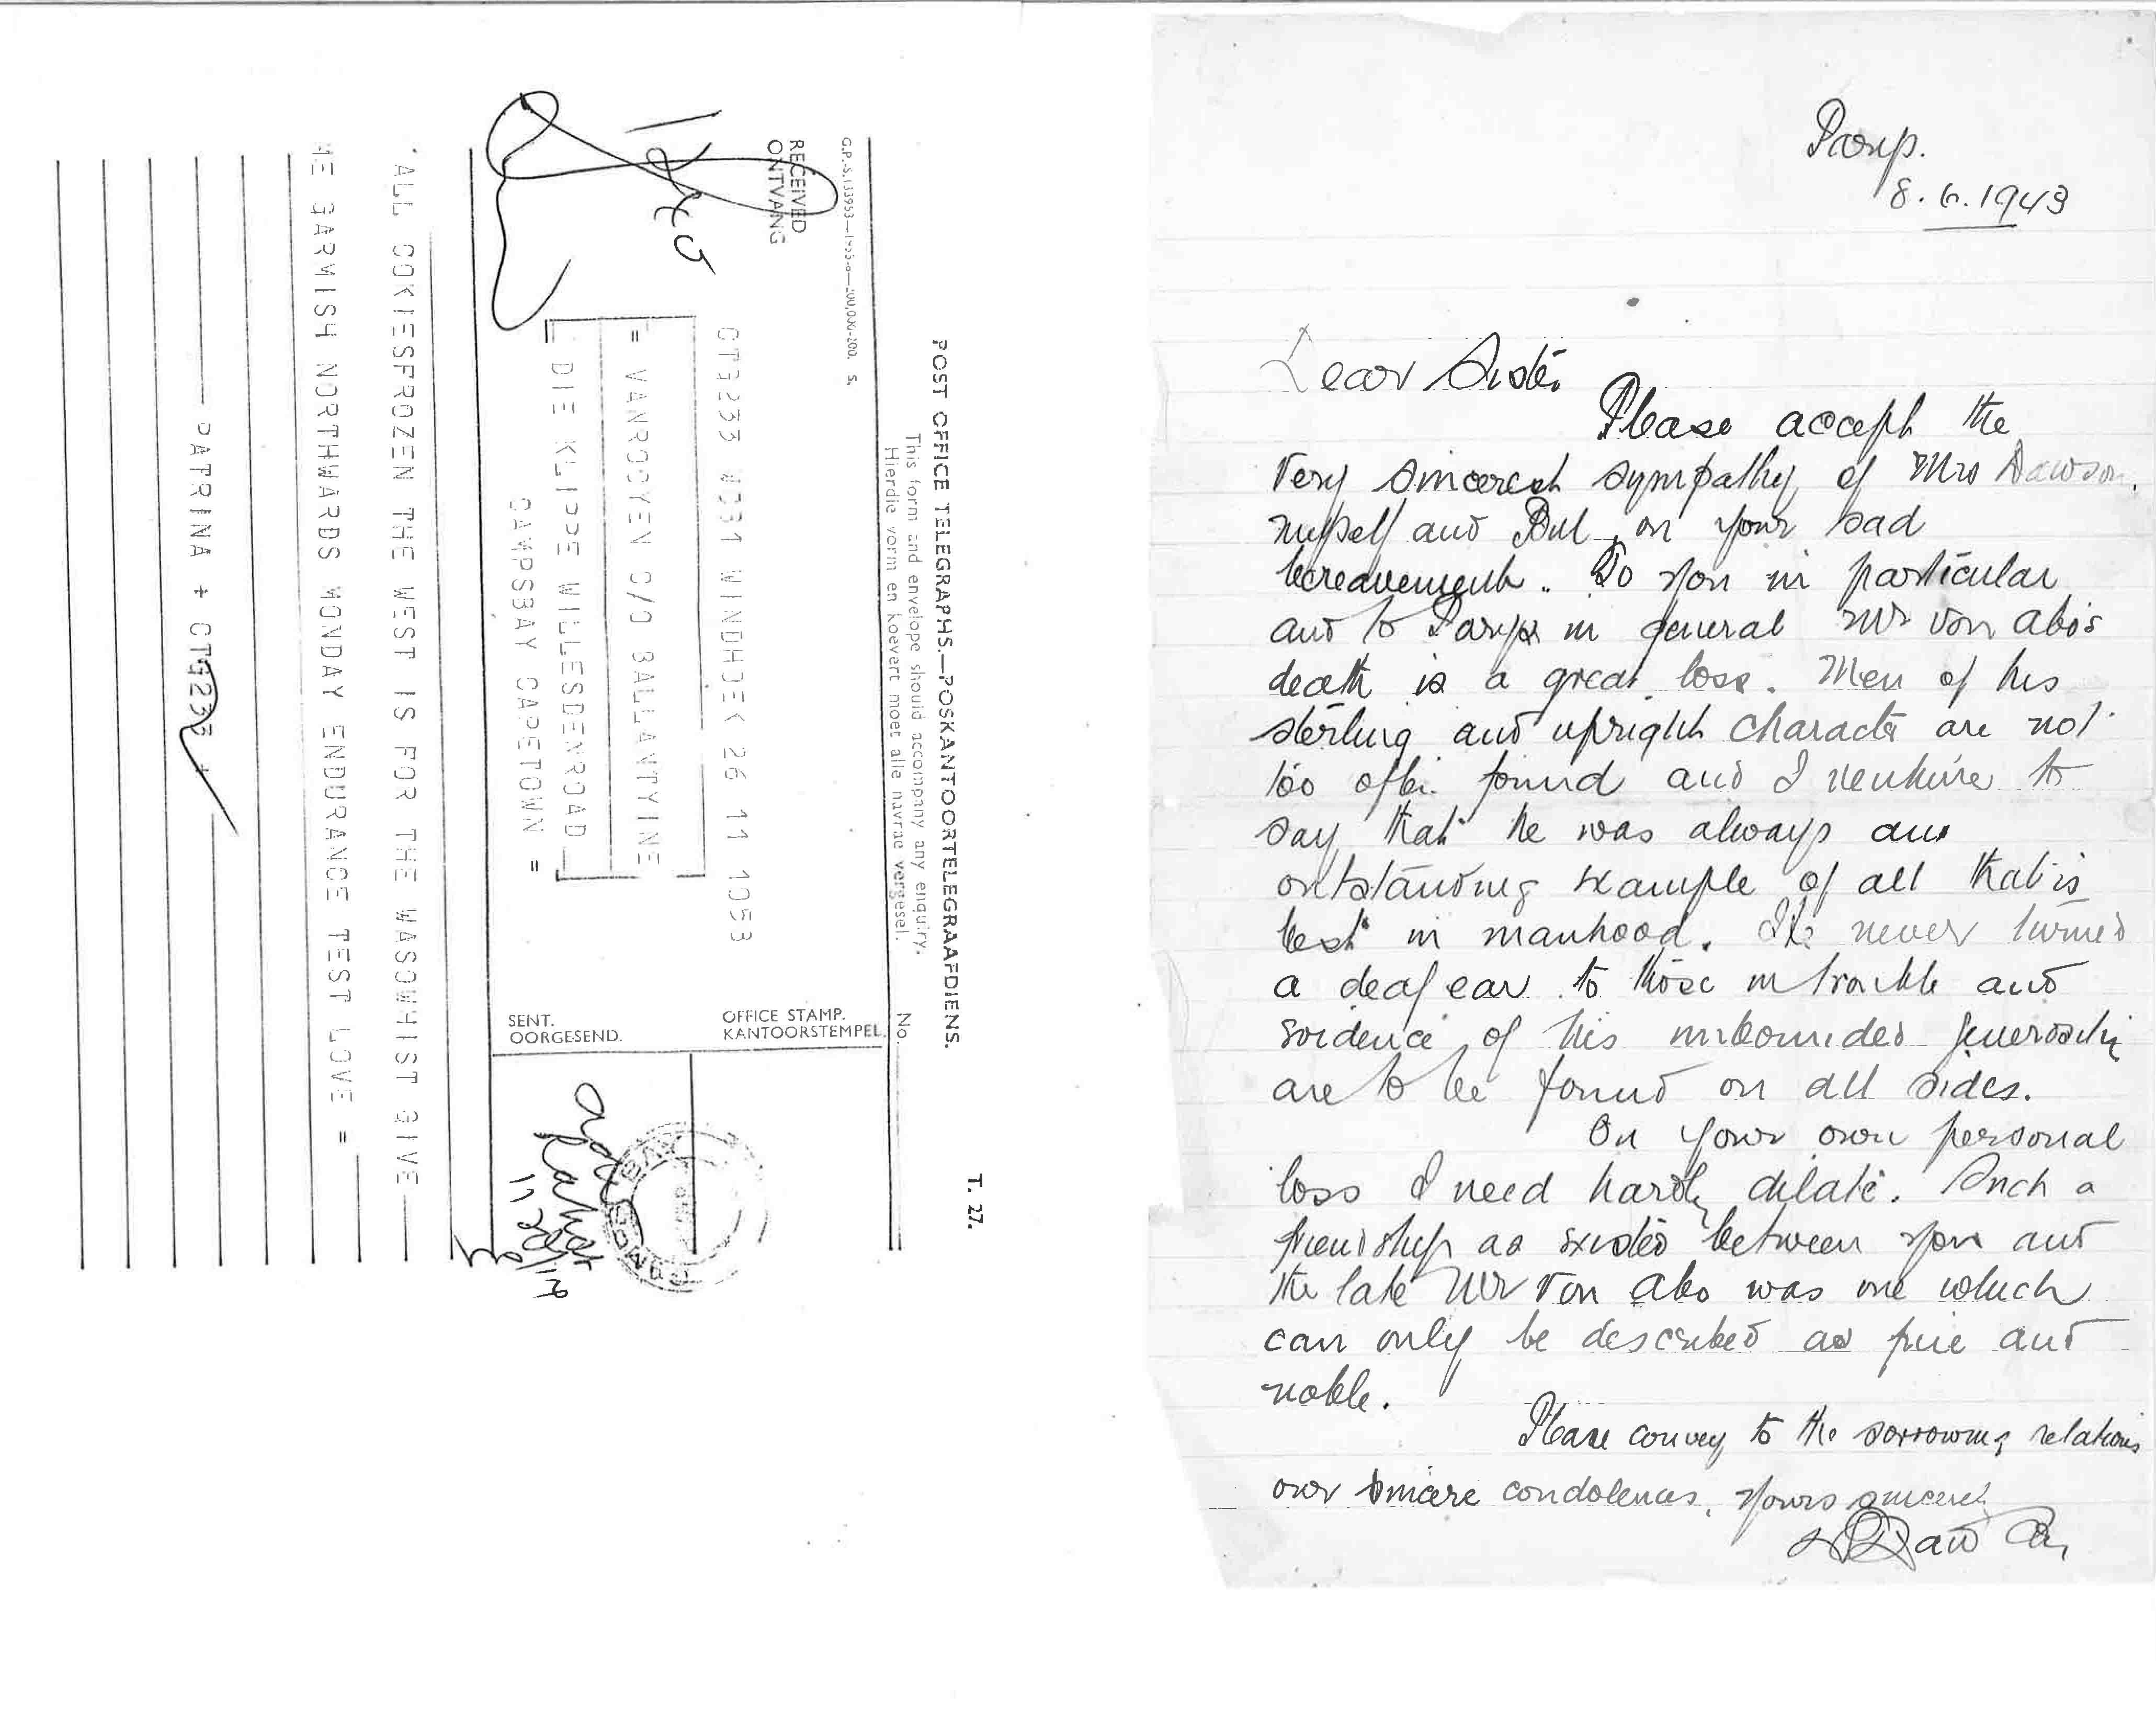 POST OFFICE TELEGRAPHS.—POSKANTOORTELEGRAAFDIENS.
T. 27.
This form and envelope should accompany any enquiry.
Hierdie vorm en koevert moet alle navrae vergesel.
No.
G.P.-S.
RECEIVED
ONTVANG
OFFICE STAMP.
KANTOORSTEMPEL.
SENT.
OORGESEND.
CT9233 W331 WINDHOEK 26 11 1053
= VANROOYEN C/O BALLANTYINE
DIE KLIPPE WILLESDENROAD
CAMPSBAY CAPETOWN =
ALL COKIESFROZEN THE WEST IS FOR THE MASOWHIST GIVE
ME GARMISH NORTHWARDS MONDAY ENDURANCE TEST LOVE =
PATRINA + CT9233 +
8.6.1943
Dear Sister
Please accept the
very sincerest sympathy of Mrs Dawson,
myself and on your sad
bereavement. To you in particular
and to in general Mr Von Abo's
death is a great loss. Men of his
sterling and upright character are not
too often found and I venture to
say that he was always an
outstanding example of all that is
best in manhood. He never turned
a deaf ear to those in trouble and
evidence of his unbounded generosity
are to be found on all sides.
On your own personal
loss I need hardly dilate. Such a
friendship as existed between you and
the late Mr Von Abo was one which
can only be described as pure and
noble.
Please convey to the sorrowing relations
our sincere condolences, Yours sincerely